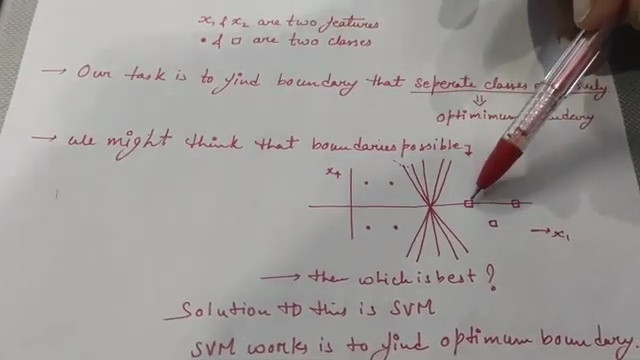 x₁ & x₂ are two features
• & □ are two classes
→ Our task is to find boundary that seperate classes
optimimum
→ we might think that boundaries possible
x₄
→ x₁
→ then which is best?
Solution to this is SVM
SVM works is to find optimum boundary.